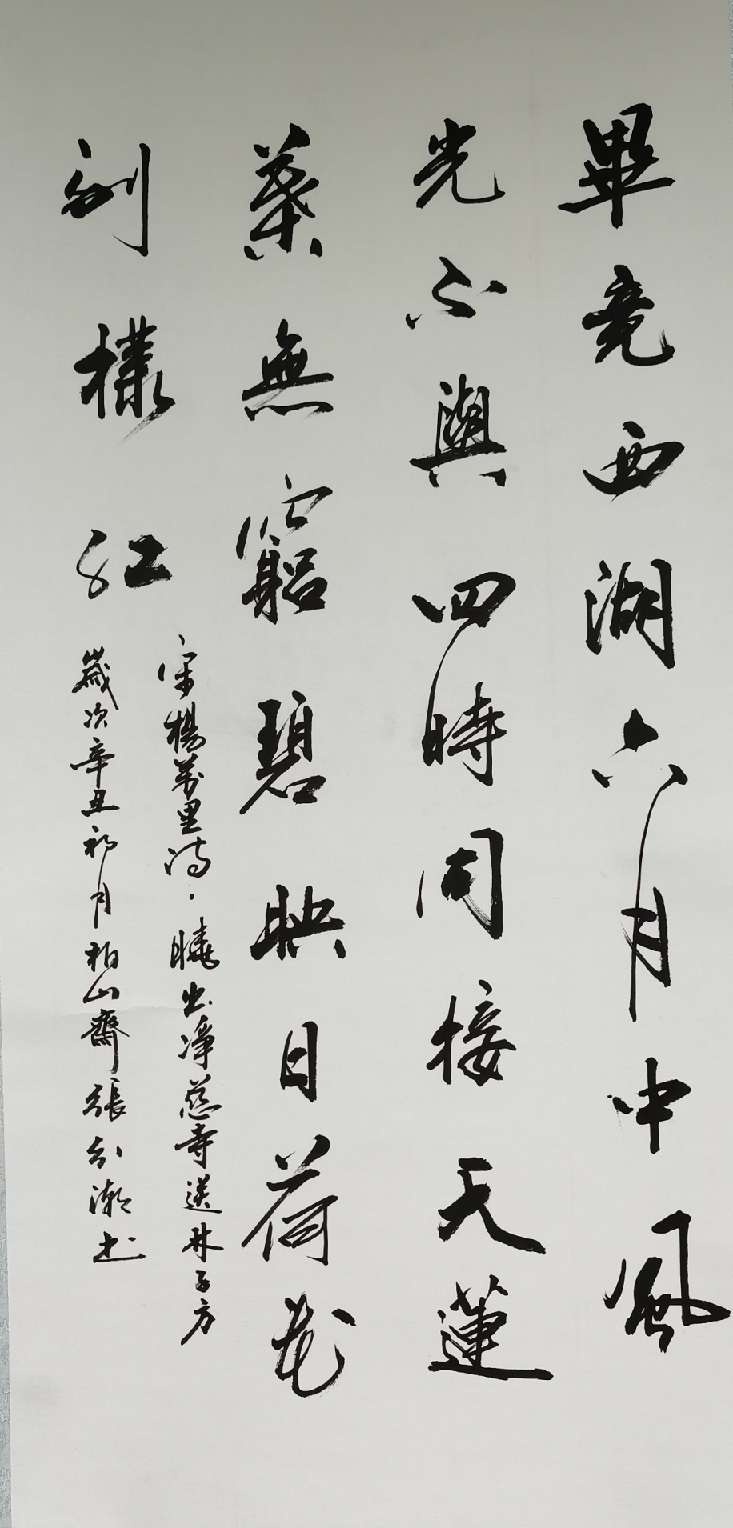 畢竟西湖六月中風
光不與四時同接天蓮
葉無窮碧映日荷花
別樣紅
宋楊萬里詩·曉出淨慈寺送林子方
歲次辛丑初月柏山齋張潮書